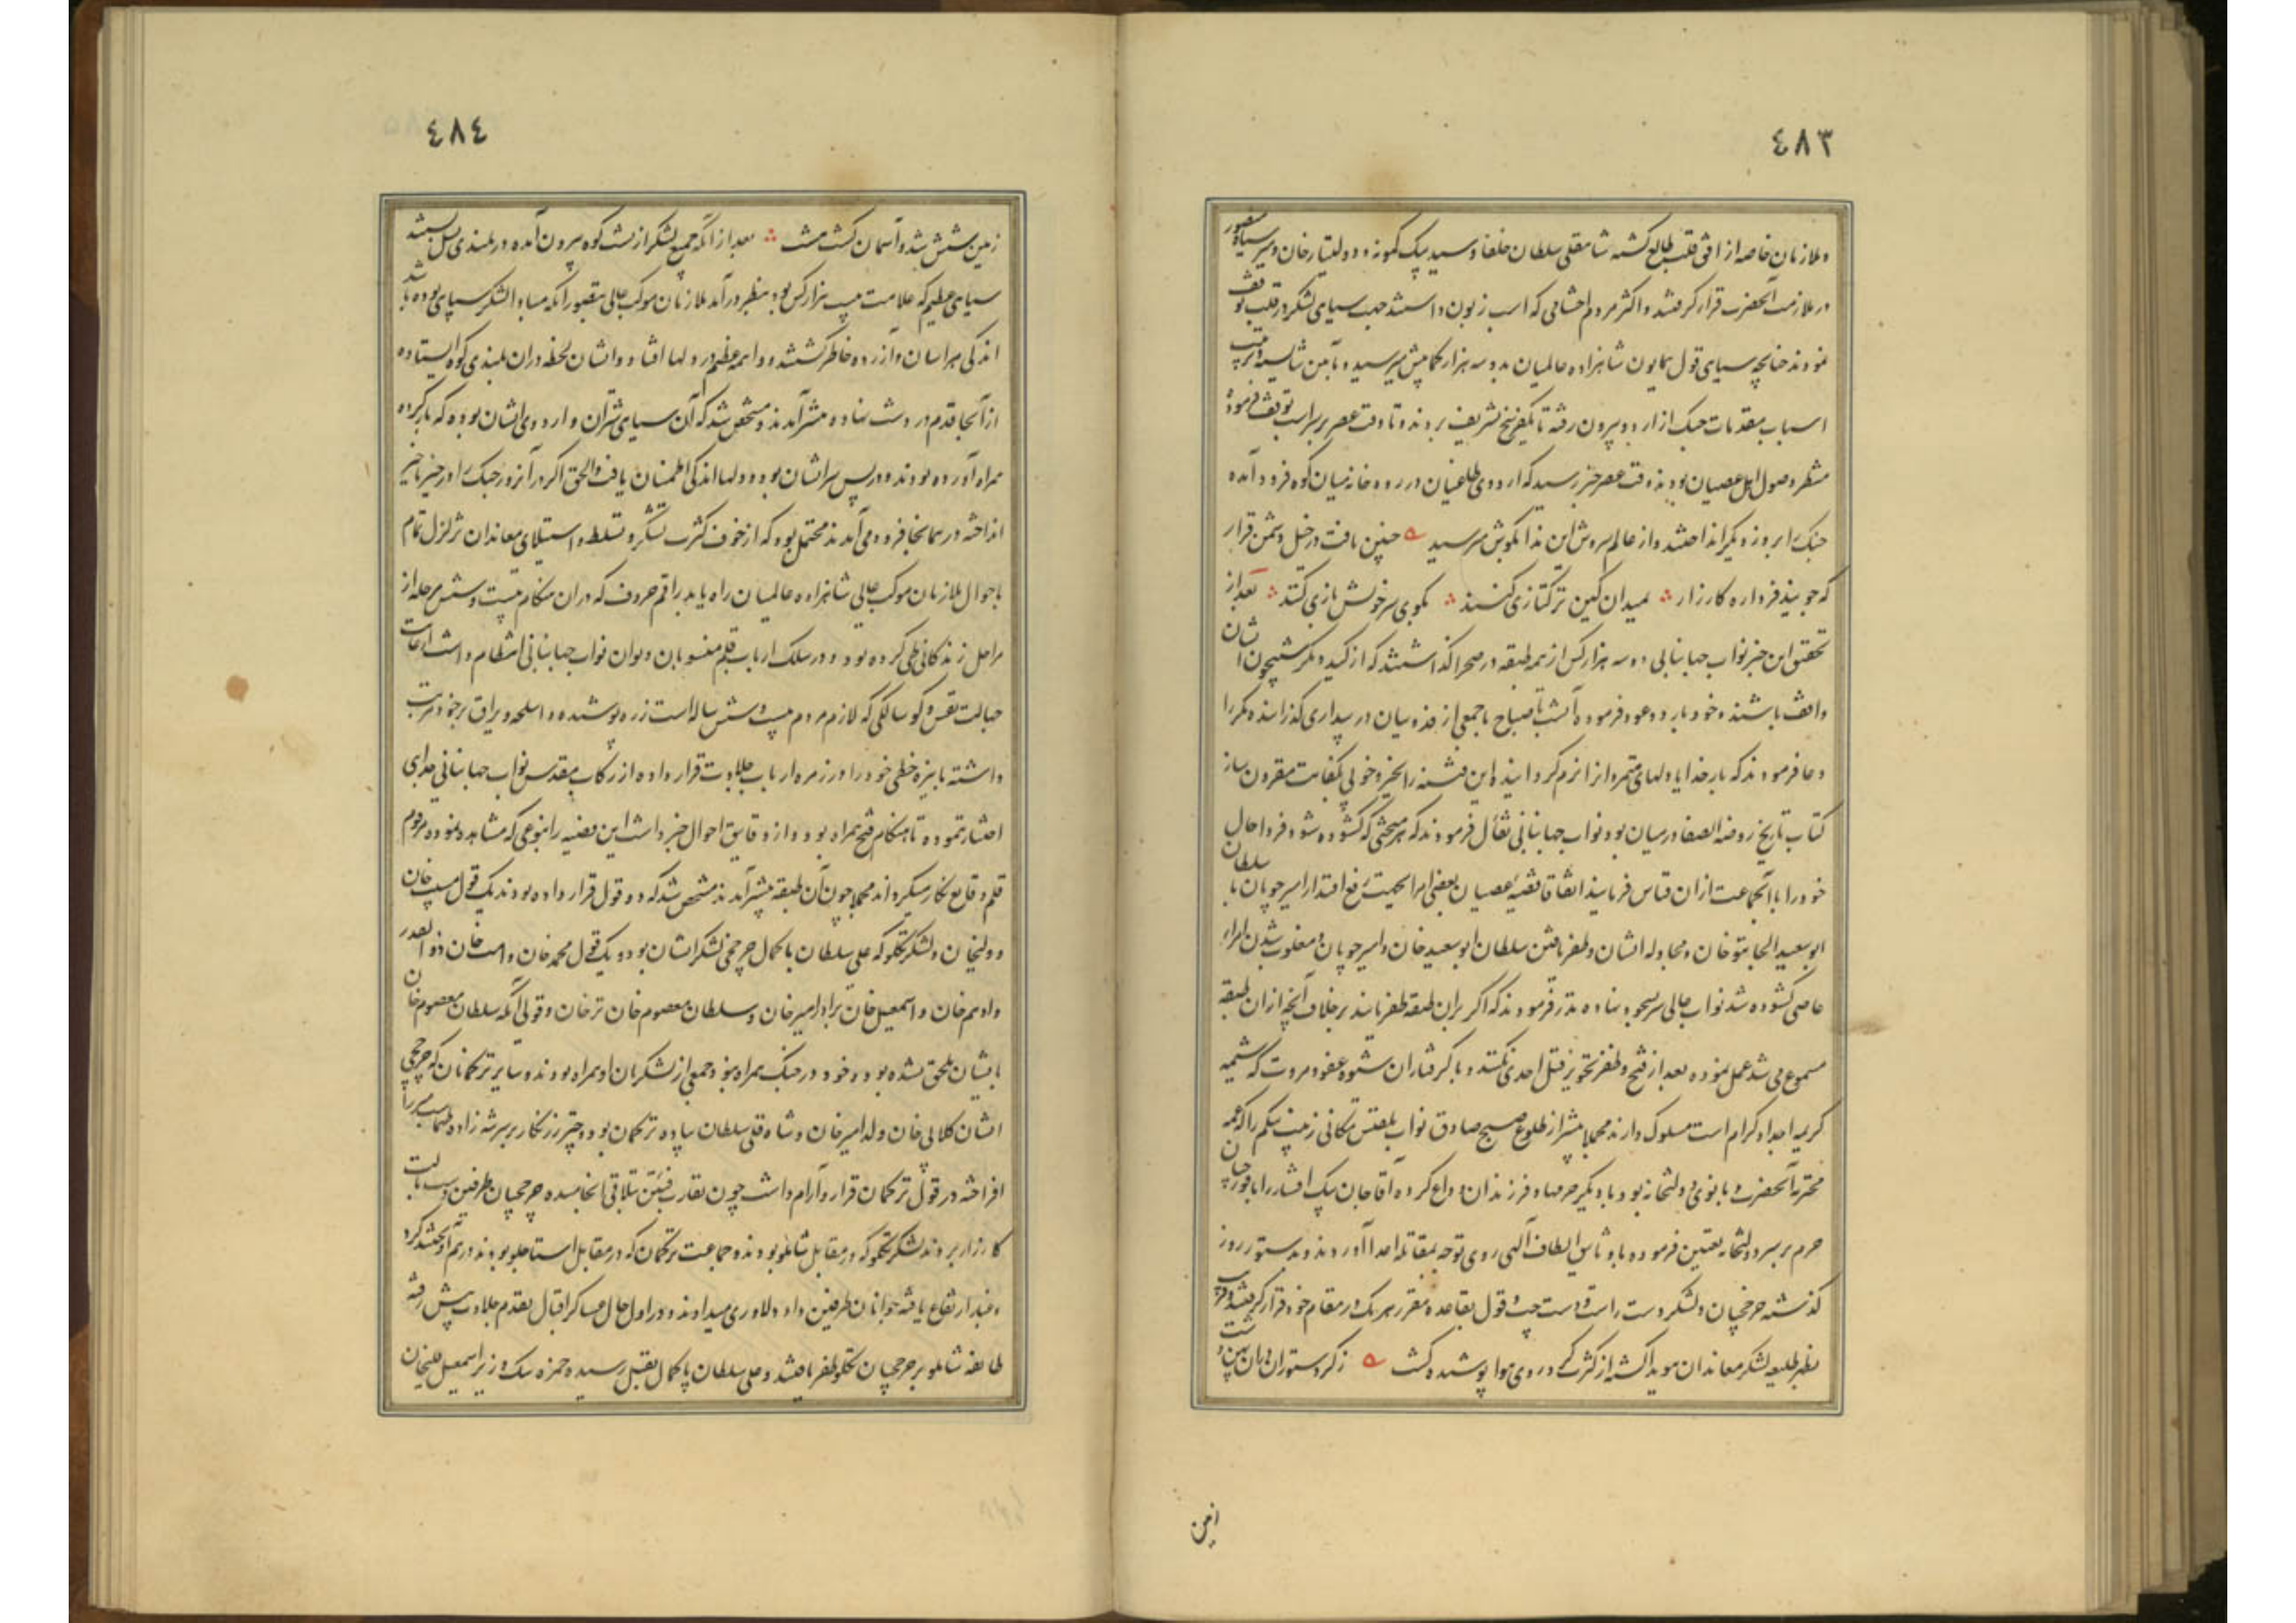 ٤٨٣
و ملازمان خاصه از افق قلب طالع گشته شاهقلی سلطان خلفا و سید بیک کمونه و دولتیار خان و میر منصور سیاه
در ملازمت آنحضرت قرار گرفتند و اکثر مردم احشامی که اسب زبون داشتند جهت سیاهی لشکر در قلب توقف
نمودند چنانچه سیاهی قول همایون شاهزاده عالمیان بدو سه هزار کمابیش میرسید و بآیین شایسته و ترتیب
اسباب مقدمات جنگ از اردو بیرون رفته تا یکفرسخ تشریف بردند و تا وقت عصر بر سر اسب توقف فرموده
منتظر وصول اهل عصیان بودند وقت عصر خبر رسید که اردوی طاغیان در رودخانه میان کوه فرود آمده
جنگ را بروز دیگر انداختند و از عالم سروش این ندا بگوش میرسید چنین یافت در خیل دشمن قرار
که چو بینند فردا ره کارزار بمیدان کین ترکتازی کنند بگوی سر خویش بازی کنند بعد از
تحقیق این خبر نواب جهانبانی دو سه هزار کس از همه طبقه در صحرا گذاشتند که از کید و مکر و شبیخون ایشان
واقف باشند و خود باردو عود فرموده آنشب تا صباح با جمعی از فدویان در بیداری گذرانیده مکررا
دعا فرمودند که بار خدایا دلهای متمردان را نرم گردانیده این فتنه را بخیر و خوبی بکفایت مقرون ساز
کتاب تاریخ روضه الصفا در میان بود نواب جهانبانی تفأل فرمودند که هر مبحثی که گشوده شود فردا حال
خود را با آنجماعت از ان قیاس فرمایند اتفاقا قضیه عصیان بعضی امرا بجهت رفع اقتدار امیر چوپان با سلطان
ابو سعید الجایتو خان و مجادله ایشان و ظفر یافتن سلطان ابو سعید خان و امیر چوپان و مغلوب شدن امراء
عاصی گشوده شد نواب عالی سر بسجود نهاده نذر فرمودند که اگر بران طبقه ظفر یابند بر خلاف آنچه از ان طبقه
مسموع می شد عمل نموده بعد از فتح و ظفر تجویز قتل احدی نکنند و با گرفتاران شیوه عفو و مروت که شیمه
کریمه اجداد کرام است مسلوک دارند مجملا پیشتر از طلوع صبح صادق نواب بلقیس مکانی زینب بیگم را که عمه
محترمه آنحضرت و بانوی دولتخانه بود با دیگر حرمها و فرزندان وداع کرده آقا جان بیک افشار را با قورچیان
حرم بر سر دولتخانه تعیین فرموده با وثایق الطاف الهی روی توجه بمقاتله اعدا آوردند و بدستور روز
گذشته چرخچیان و لشکر دست راست و دست چپ و قول بقاعده مقرر هر یک در مقام خود قرار گرفتند و قریب
بظهر طلیعه لشکر معاندان هویدا گشته از کثرت گرد روی هوا پوشیده گشت ز گرد ستوران دران پهن دشت
این
٤٨٤
زمین شش شد و آسمان گشت هشت بعد از آنکه جمیع لشکر از پشت کوه بیرون آمده در بلندی پل بستند
سیاهی عظیم که علامت بیست هزار کس بود بنظر در آمد ملازمان موکب عالی بتصور آنکه مبادا لشکر سپاهی بوده باشد
اندکی هراسان و آزرده خاطر گشتند و واهمه عظیم در دلها افتاد و ایشان لحظه دران بلندی کوه ایستاده
از آنجا قدم در دشت نهاده پیشتر آمدند و مشخص شد که آن سیاهی شتران و اردوی ایشان بوده که بار کرده
همراه آورده بودند و در پس سر ایشان بود و دلها اندکی اطمینان یافت و الحق اگر در آنروز جنگ را در حیز تاخیر
انداخته در همانجا فرود می آمدند محتمل بود که از خوف کثرت لشکر و تسلط و استیلای معاندان تزلزل تمام
باحوال ملازمان موکب عالی شاهزاده عالمیان راه یابد راقم حروف که دران هنگام بیست و شش مرحله از
مراحل زندگانی طی کرده بود و در سلک ارباب قلم منسوبان دیوان نواب جهانبانی انتظام داشت از غایت
جهالت نفس و کوسالگی که لازم مردم بیست و شش ساله است زره پوشیده و اسلحه و یراق بر خود مرتب
داشته با نیزه خطی خود را در زمره ارباب جلادت قرار داده از رکاب مقدس نواب جهانبانی جدایی
اختیار ننموده تا هنگام فتح همراه بود و از دقایق احوال خبر داشت این قضیه را بنوعی که مشاهده نموده مرقوم
قلم وقایع نگار میگرداند مجملا چون آن طبقه پیشتر آمدند مشخص شد که دو قول قرار داده بودند یک قول مسیب خان
و ولیخان و لشکر تکلو که علی سلطان پاکمال چرخچی لشکر ایشان بود و یک قول محمد خان و امت خان ذوالقدر
و ادهم خان و اسمعیل خان برادر امیر خان و سلطان معصوم خان ترخان و قولی آنکه سلطان معصوم خان
بایشان ملحق نشده بود و خود در جنگ همراه نبود جمعی از لشکریان او همراه بودند و سایر ترکمانان که چرخچی
ایشان کلابی خان ولد امیر خان و شاه قلی سلطان پیاده ترکمان بود و چتر زرنگار بر سر شهزاده طهماسب میرزا
افراخته در قول ترکمان قرار و آرام داشت چون تقارب فئتین بتلاقی انجامیده چرخچیان طرفین دست بآلت
کارزار بردند لشکر تکلو که در مقابل شاملو بودند و جماعت ترکمان که در مقابل استاجلو بودند در هم آویختند گرد
و غبار ارتفاع یافته جوانان طرفین داد دلاوری میدادند و در اول حال عساکر اقبال بقدم جلادت پیش رفته
طایفه شاملو بر چرخچیان تکلو ظفر یافتند و علی سلطان پاکمال بقتل رسیده حمزه بیک وزیر اسمعیل قلیخان